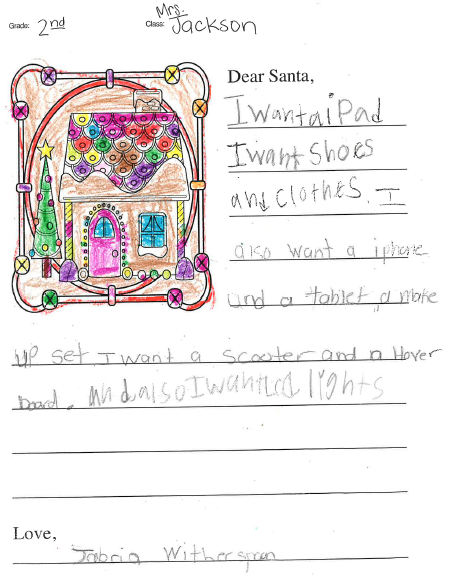 Grade: 2nd
Class: Mrs. Jackson
Dear Santa,
I want a iPad
I want Shoes
and clothes. I
also want a iphone
and a tablet, a make
up set. I want a scooter and a Hover
board. And also I want Led lights
Love,
Jabria Witherspoon